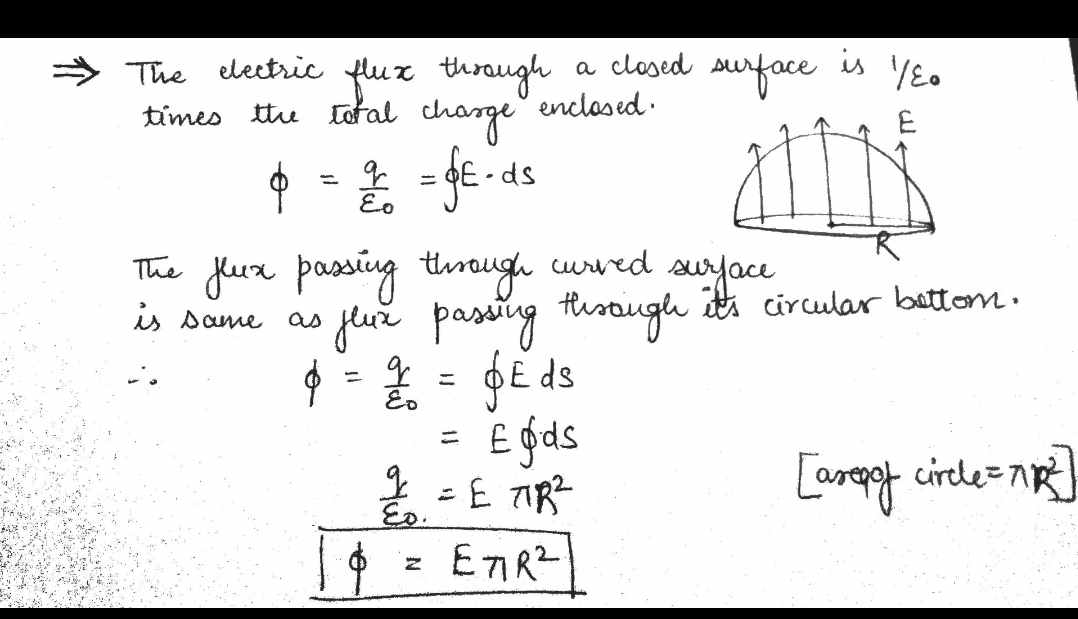 ⇒ The electric flux through a closed surface is 1/ε₀
times the total charge enclosed.
E
ϕ = q/ε₀ = ∮E·ds
R
The flux passing through curved surface
is same as flux passing through its circular bottom.
∴ ϕ = q/ε₀ = ∮E ds
= E ∮ds
[area of circle = πR²]
q/ε₀. = E πR²
ϕ = E πR²